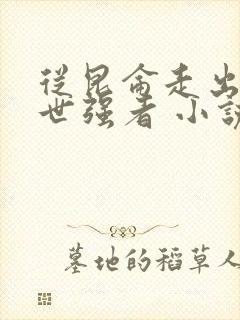 從昆侖走出
世強者 小說
墓地的稻草人